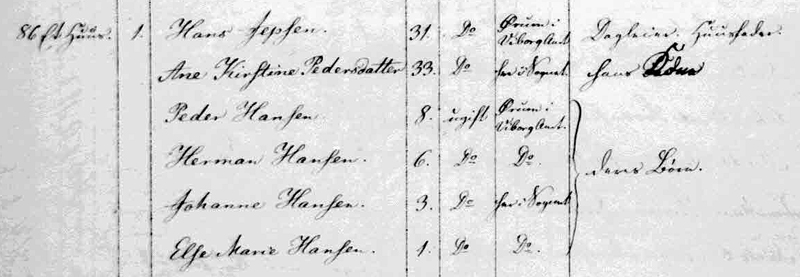 86 Et Huus 1. Hans Jepsen. 31. Do Ørum i Viborg Amt. Dagleier. Huusfader.
Ane Kirstine Pedersdatter 33. Do her i Sognet hans Kone
Peder Hansen 8. ugift Ørum i Viborg Amt.
Herman Hansen. 6. Do Do. deres Børn.
Johanne Hansen. 3. Do her i Sognet
Else Marie Hansen. 1. Do Do.